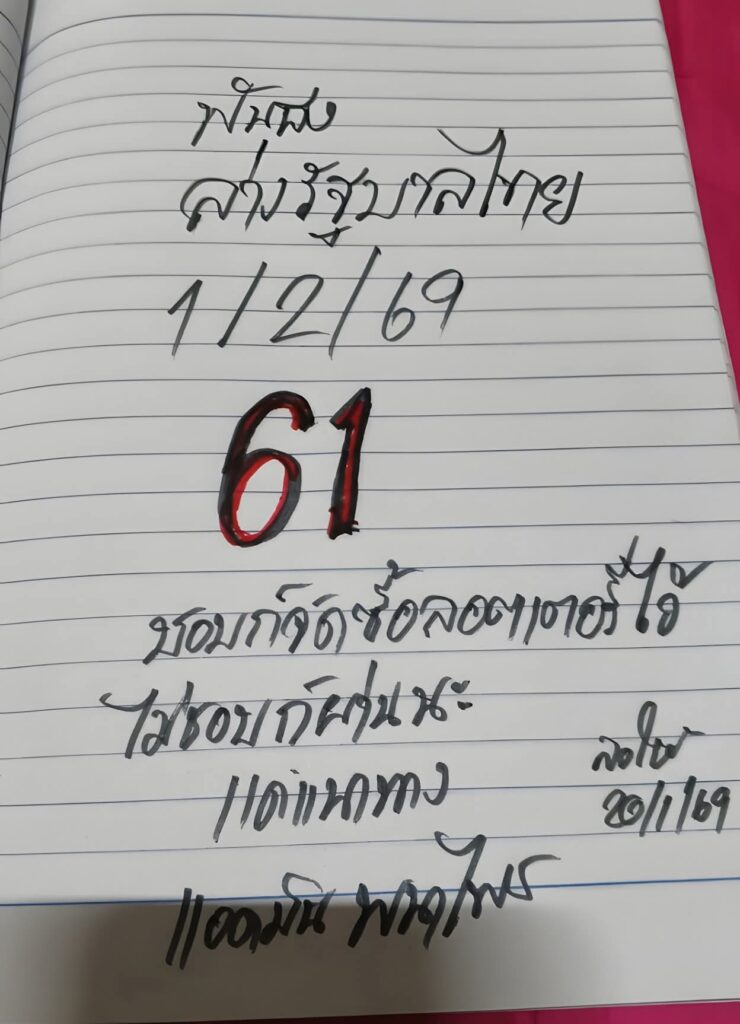 ฟันธง
ล่างรัฐบาลไทย
1/2/69
61
ชอบก็จัดซื้อลอตเตอรี่ไว้
ไม่ชอบก็ผ่านนะ
แค่แนวทาง
ลงให้
20/1/69
แอดมิน